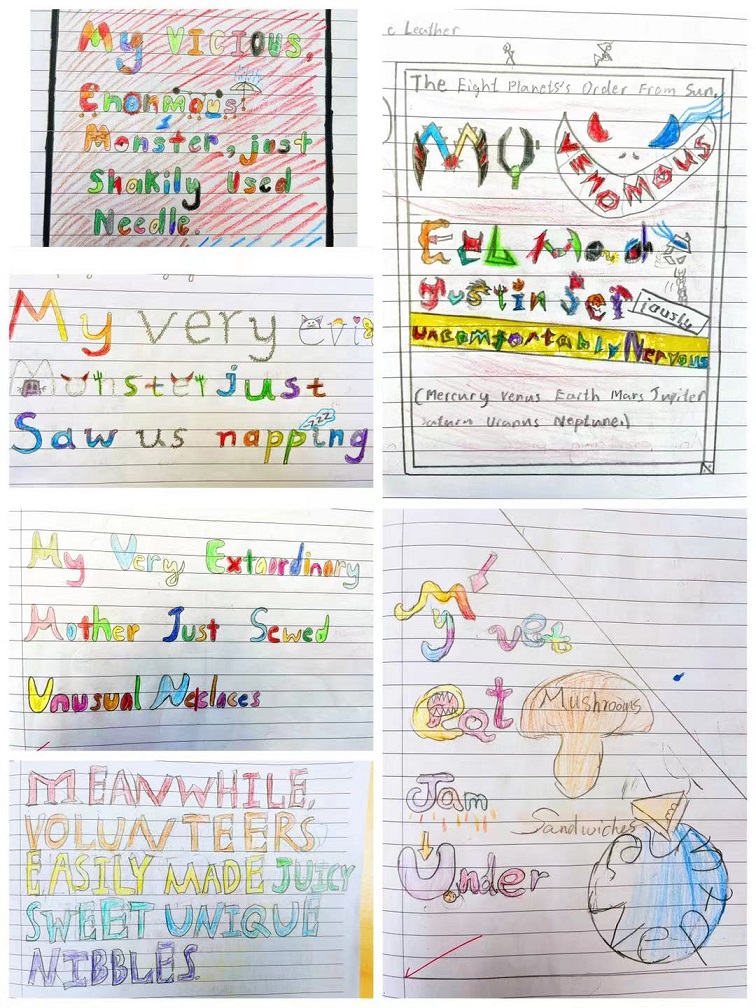 My Vicious,
Enonmous
Monster, just
Shakily Used
Needle.
Leather
The Eight Planets's Order From Sun.
My VEMOMOUS
Eel
Justin
uncomfortably Nervous
(Mercury Venus Earth Mars Jupiter
Saturn Uranus Neptune.)
My very evil
Monster just
Saw us napping
My Very Extaordinary
Mother Just Sewed
Unusual Neklaces
MEANWHILE,
VOLUNTEERS
EASILY MADE JUICY
SWEET UNIQUE
NIBBLES.
My vet
eat Mushrooms
Jam
Sandwiches
Under